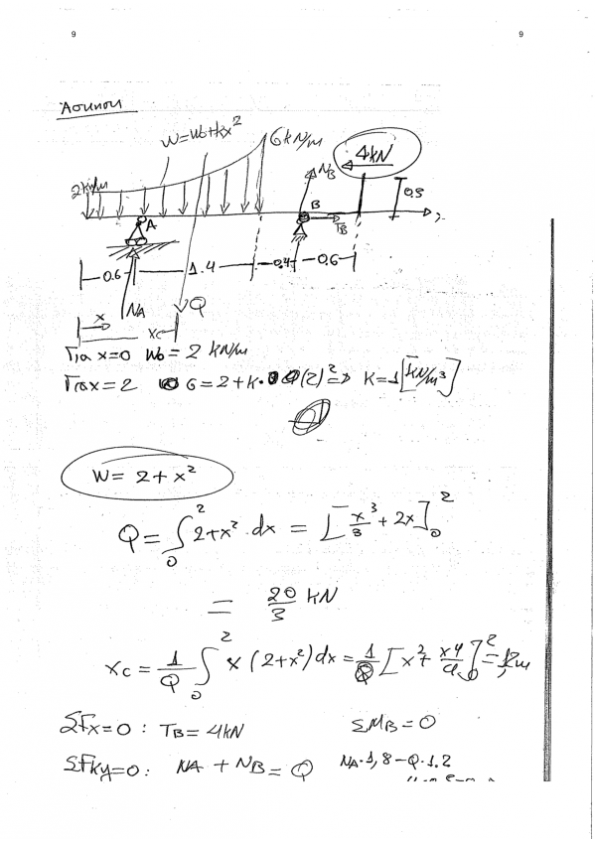 9 9
Άσκηση
w=w₀+kx²
6kN/m
4kN
2kN/m
N_B
0.5
A
B
T_B
0.6 1.4 0.4 0.6
N_A
Q
x
x_c
Για x=0 w₀ = 2 kN/m
Για x=2 6=2+k·(2)² => k=1 [kN/m³]
w= 2+x²
Q = ∫₀² 2+x² · dx = [x³/3 + 2x]₀²
= 20/3 kN
x_c = 1/Q ∫₀² x (2+x²) dx = 1/Q [x² + x⁴/4]₀² =
ΣFx=0 : T_B = 4kN ΣM_B = 0
ΣFky=0 : N_A + N_B = Q N_A·1,8 – Q·1.2